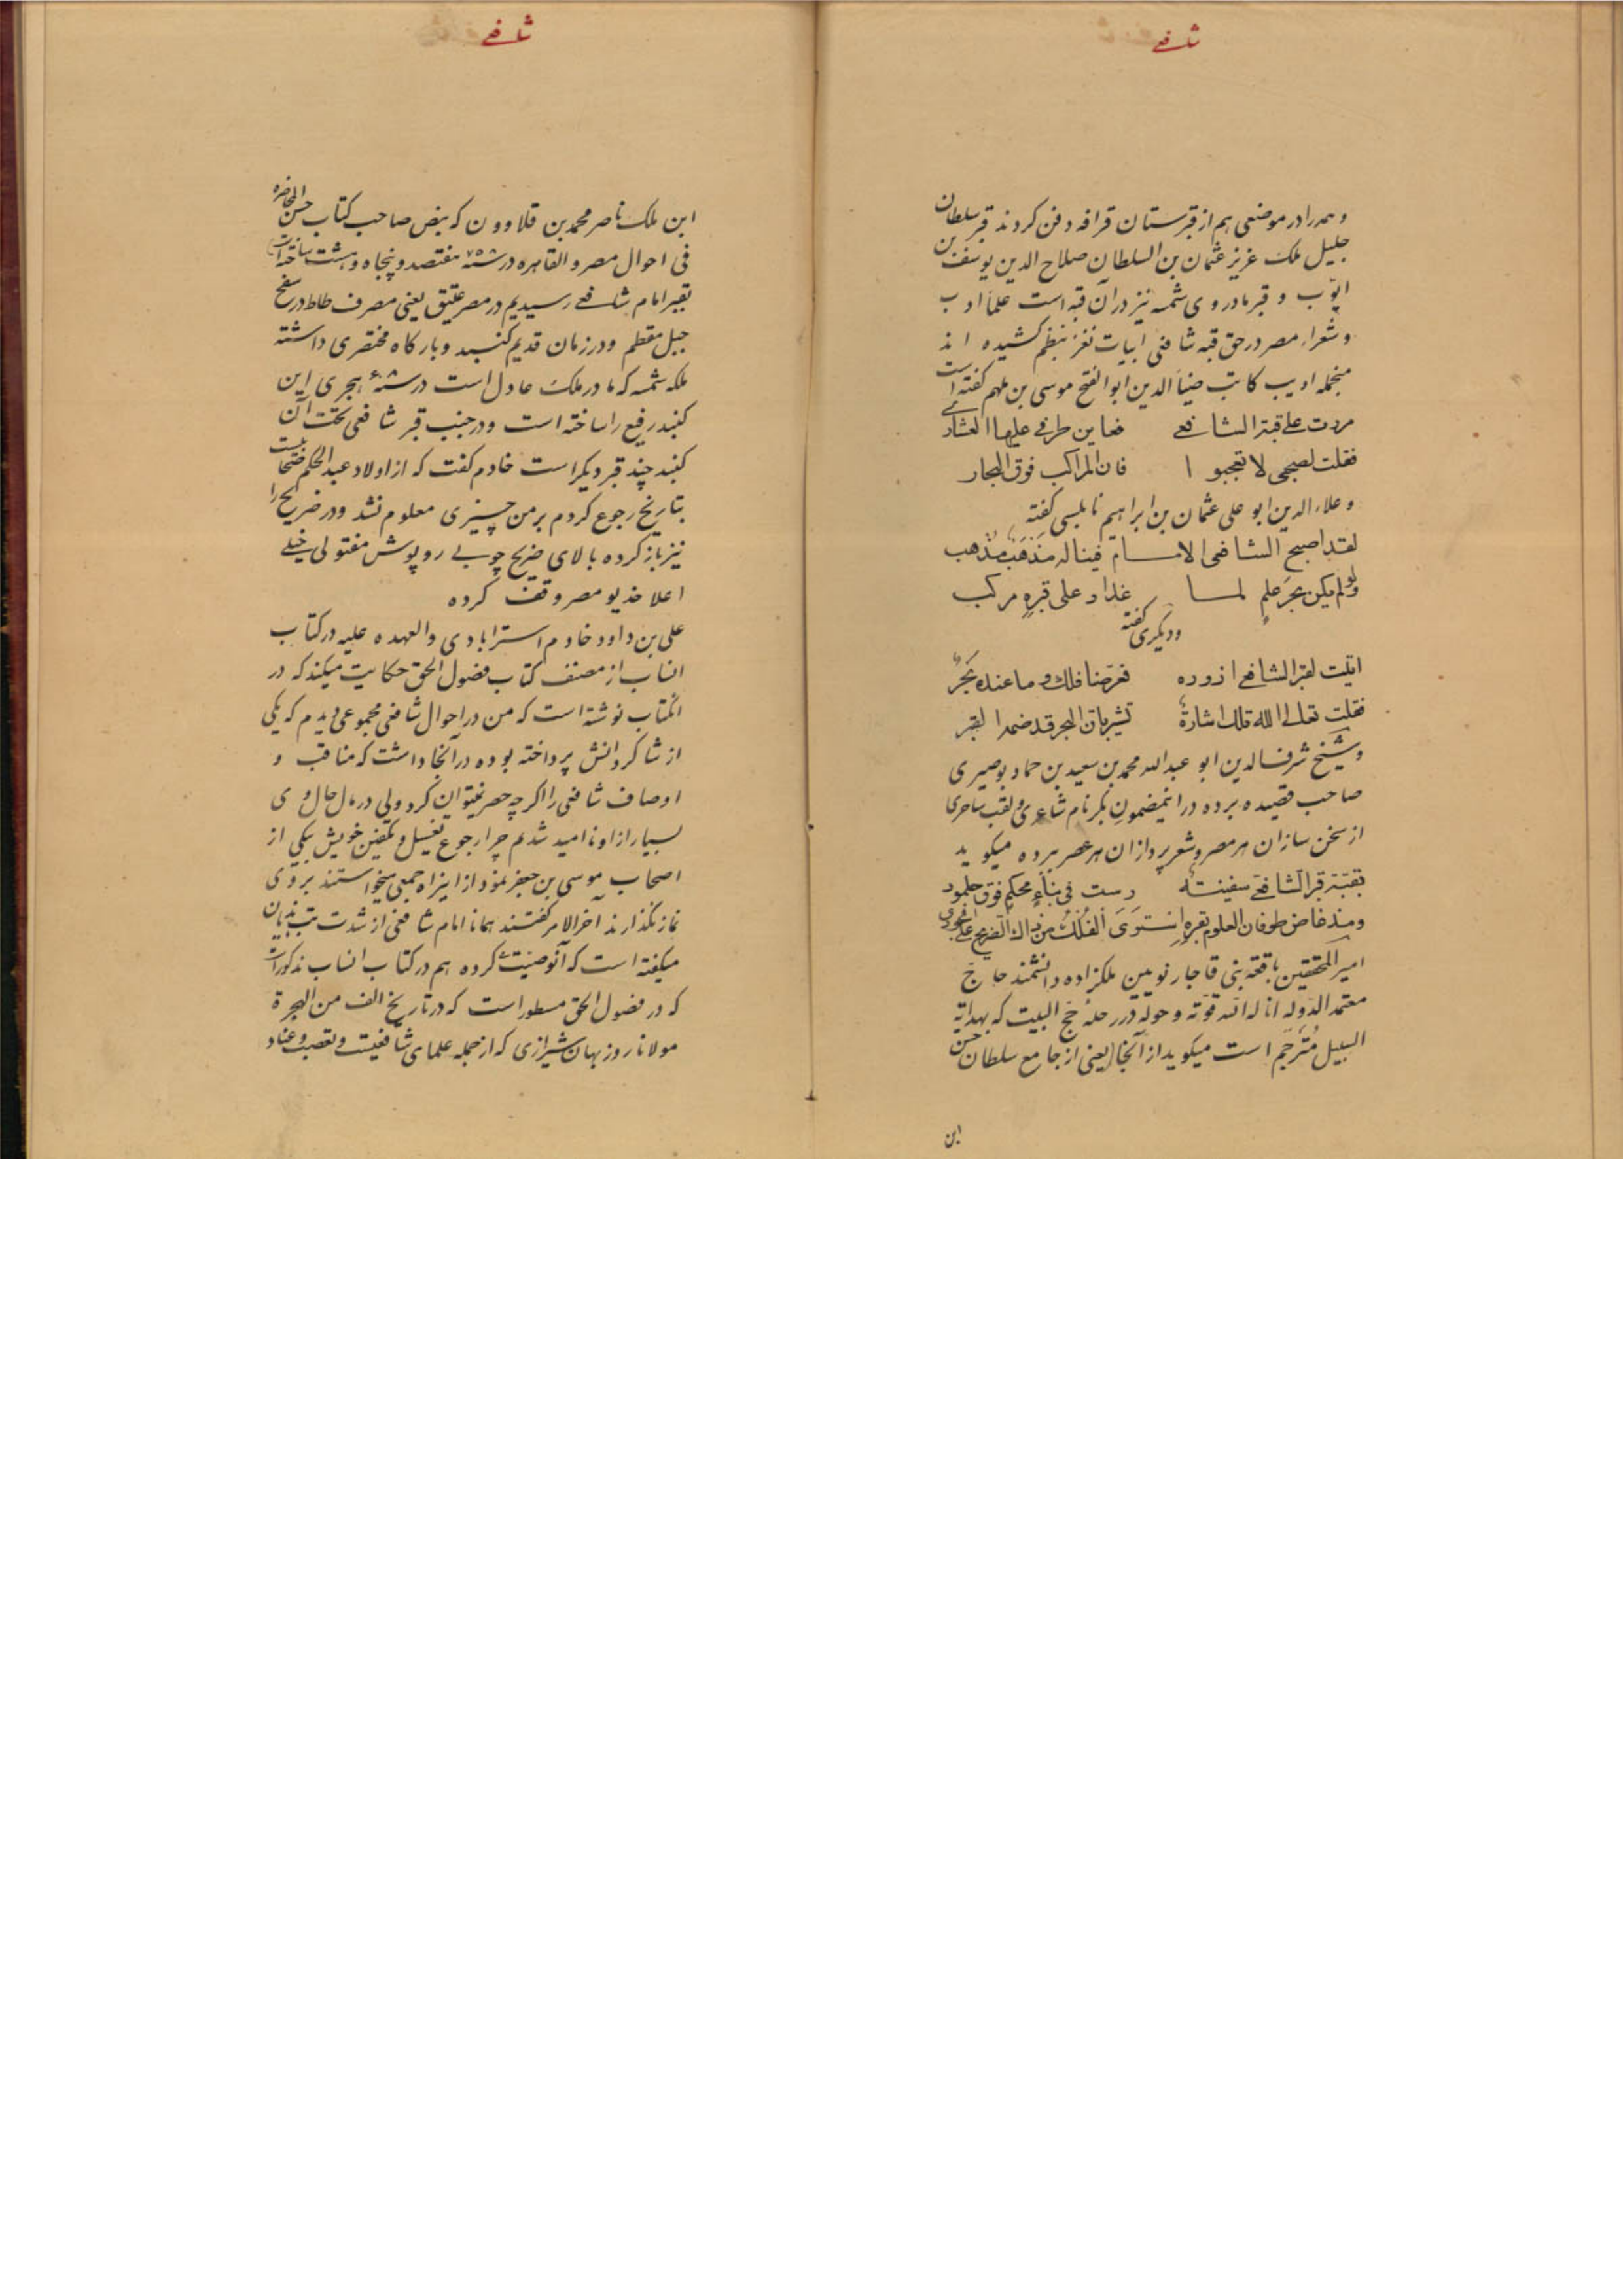 شافعے
و همه را در موضعی هم از قبرستان قرافه دفن کردند قبر سلطان
جلیل ملک عزیز عثمان بن السلطان صلاح الدین یوسف بن
ایوّب و قبر مادر وی شمسه نیز در آن قبه است علما و ادب
و شعراء مصر در حق قبه شافعی ابیات نغز بنظم کشیده اند
منجمله ادیب کاتب ضیاء الدین ابو الفتح موسی بن ملهم گفته است
مررت علی قبة الشافعے فعاین طرفے علیها العشارے
فقلت لصحبی لا تعجبوا فان المراکب فوق البحار
و علاء الدین ابو علی عثمان بن ابراهیم نابلسی گفته
لقد اصبح الشافعی الامام فینا له مذهب مذهب
ولو لم یکن بحر علمٍ لما غدا و علی قبرہٍ مرکب
و دیگری گفته
اتیت لقبر الشافعے ازوره فعرضنا فلك و ما عنده بحرٌ
فقلت تعالے الله تلك اشارةٌ تشیر بان البحر قد ضمه القبر
و شیخ شرف الدین ابو عبد الله محمد بن سعید بن حماد بوصیری
صاحب قصیده برده در اینمضمون بکر نام شاعری و لقب ساحری
از سخن سازان هر مصر و شعر پردازان هر عصر برده میگوید
بقبّة قبر الشافعےِ سفینتةٌ رست فی بناءٍ محکمٍ فوق جلمود
ومذ غاض طوفان العلوم بقبرہ استوی الفلك من ذاك الضریح علی الجودی
امیر المحققین باقعه بنی قاجار نویین ملکزاده دانشمند حاج
معتمد الدوله اناله الله قوّته و حوله در رحله حج البیت که بهدایة
السبیل مُترجَم است میگوید از آنجا یعنی از جامع سلطان حسن
ابن
شافعے
ابن ملک ناصر محمد بن قلاوون که بنص صاحب کتاب حسن المحاضره
فی احوال مصر و القاهره در سنه ۷۵۸ هفتصد و پنجاه و هشت ساخته است
بقبر امام شافعے رسیدیم در مصر عتیق یعنی مصر فسطاط در سفح
جبل مقطم و در زمان قدیم گنبد و بارگاه مختصری داشته
ملکه شمسه که مادر ملک عادل است در سنه هجری این
گنبد رفیع را ساخته است و در جنب قبر شافعی تحت آن
گنبد چند قبر دیگر است خادم گفت که از اولاد عبد الحکم
بتاریخ رجوع کردم بر من چیزی معلوم نشد و در ضریح را
نیز باز کرده بالای ضریح چوبے روپوش مفتولی خیلے
اعلا خدیو مصر وقف کرده
علی بن داود خادم استرابادی و العهده علیه در کتاب
انساب از مصنف کتاب فضول الحق حکایت میکند که در
آنکتاب نوشته است که من در احوال شافعی مجموعی دیدم که یکی
از شاگردانش پرداخته بوده در آنجا داشت که مناقب و
اوصاف شافعی را اگرچه حصر نمیتوان کرد ولی در مال حال وی
بسیار از او ناامید شدم چرا رجوع تغسیل و تکفین خویش بیکی از
اصحاب موسی بن جعفر نمود از اینراه جمعی میخواستند بر وی
نماز نگذارند آخر الامر گفتند همانا امام شافعی از شدت تب هذیان
میگفته است که آنوصیّت کرده هم در کتاب انساب مذکور است
که در فضول الحق مسطور است که در تاریخ الف من الهجرة
مولانا روزبهان شیرازی که از جمله علمای شافعیست و تعصب و عناد